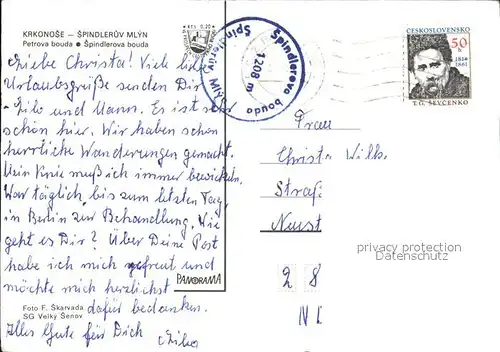 KRKONOŠE – ŠPINDLERŮV MLÝN
Petrova bouda ● Špindlerova bouda
Kčs 0,20
Liebe Christa! Viele liebe
Urlaubsgrüße senden Dir
Zilo und Mann. Es ist sehr
schön hier. Wir haben schon
herrliche Wanderungen gemacht.
Mein Knie muß ich immer bewickeln.
War täglich bis zum letzten Tag,
in Berlin zur Behandlung. Wie
geht es Dir? Über Deine Post
habe ich mich gefreut und
möchte mich herzlichst
dafür bedanken.
Alles Gute für Dich
PANORAMA
Foto F. Škarvada
SG Velký Šenov
Špindlerova bouda
1208 m
Špindlerův Mlýn
ČESKOSLOVENSKO
50 h
1814
1861
T.G. ŠEVČENKO
Frau
Christa Wilh
Straß
Neust
2 8
privacy protection
Datenschutz